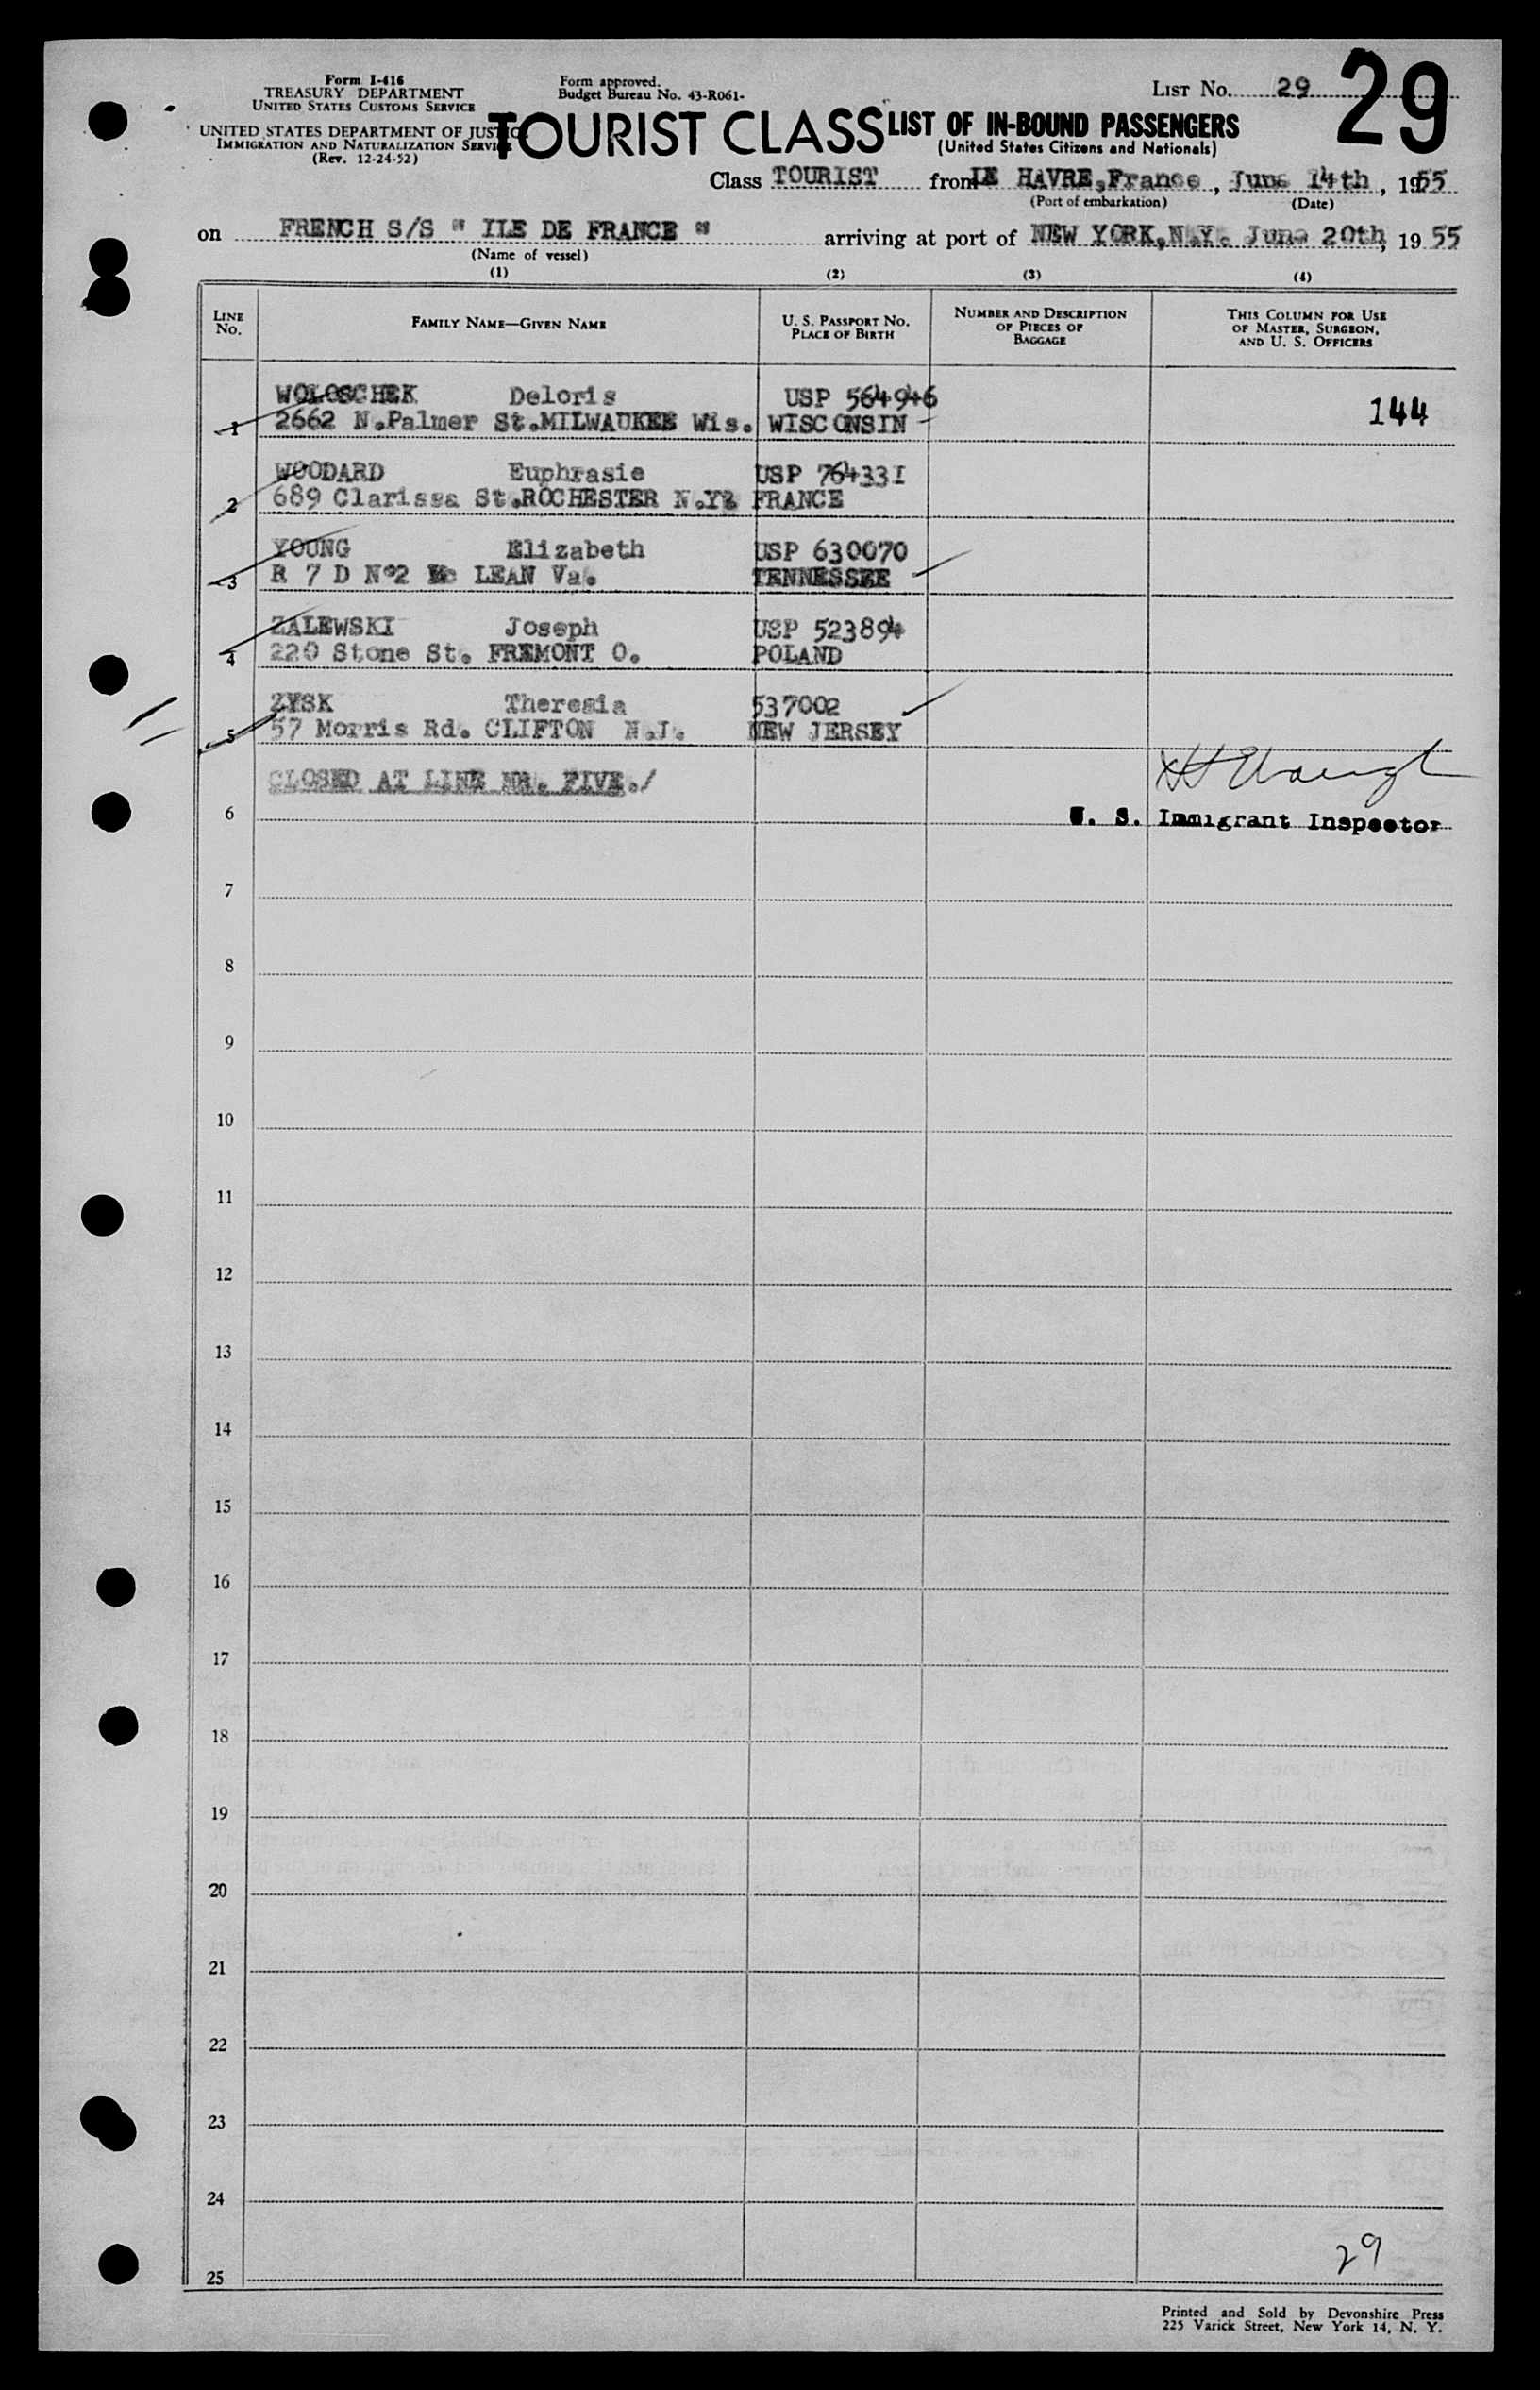 Form I-416
TREASURY DEPARTMENT
UNITED STATES CUSTOMS SERVICE
UNITED STATES DEPARTMENT OF JUSTICE
IMMIGRATION AND NATURALIZATION SERVICE
(Rev. 12-24-52)
Form approved.
Budget Bureau No. 43-R061-
LIST No. 29
29
TOURIST CLASS LIST OF IN-BOUND PASSENGERS
(United States Citizens and Nationals)
Class TOURIST from LE HAVRE, France, June 14th, 1955
(Port of embarkation) (Date)
on FRENCH S/S " ILE DE FRANCE " arriving at port of NEW YORK, N.Y. June 20th, 1955
(Name of vessel)
(1) (2) (3) (4)
LINE No. FAMILY NAME—GIVEN NAME U. S. PASSPORT No. PLACE OF BIRTH NUMBER AND DESCRIPTION OF PIECES OF BAGGAGE THIS COLUMN FOR USE OF MASTER, SURGEON, AND U. S. OFFICERS
WOLOSCHEK Deloris USP 564946 144
1 2662 N.Palmer St.MILWAUKEE Wis. WISCONSIN
WOODARD Euphrasie USP 764331
2 689 Clarissa St.ROCHESTER N.Y. FRANCE
YOUNG Elizabeth USP 630070
3 R 7 D N°2 Mc LEAN Va. TENNESSEE
ZALEWSKI Joseph USP 523894
4 220 Stone St. FREMONT O. POLAND
ZYSK Theresia 537002
5 57 Morris Rd. CLIFTON N.J. NEW JERSEY
CLOSED AT LINE NR. FIVE./
6 U. S. Immigrant Inspector
7
8
9
10
11
12
13
14
15
16
17
18
19
20
21
22
23
24
29
25
Printed and Sold by Devonshire Press
225 Varick Street, New York 14, N. Y.